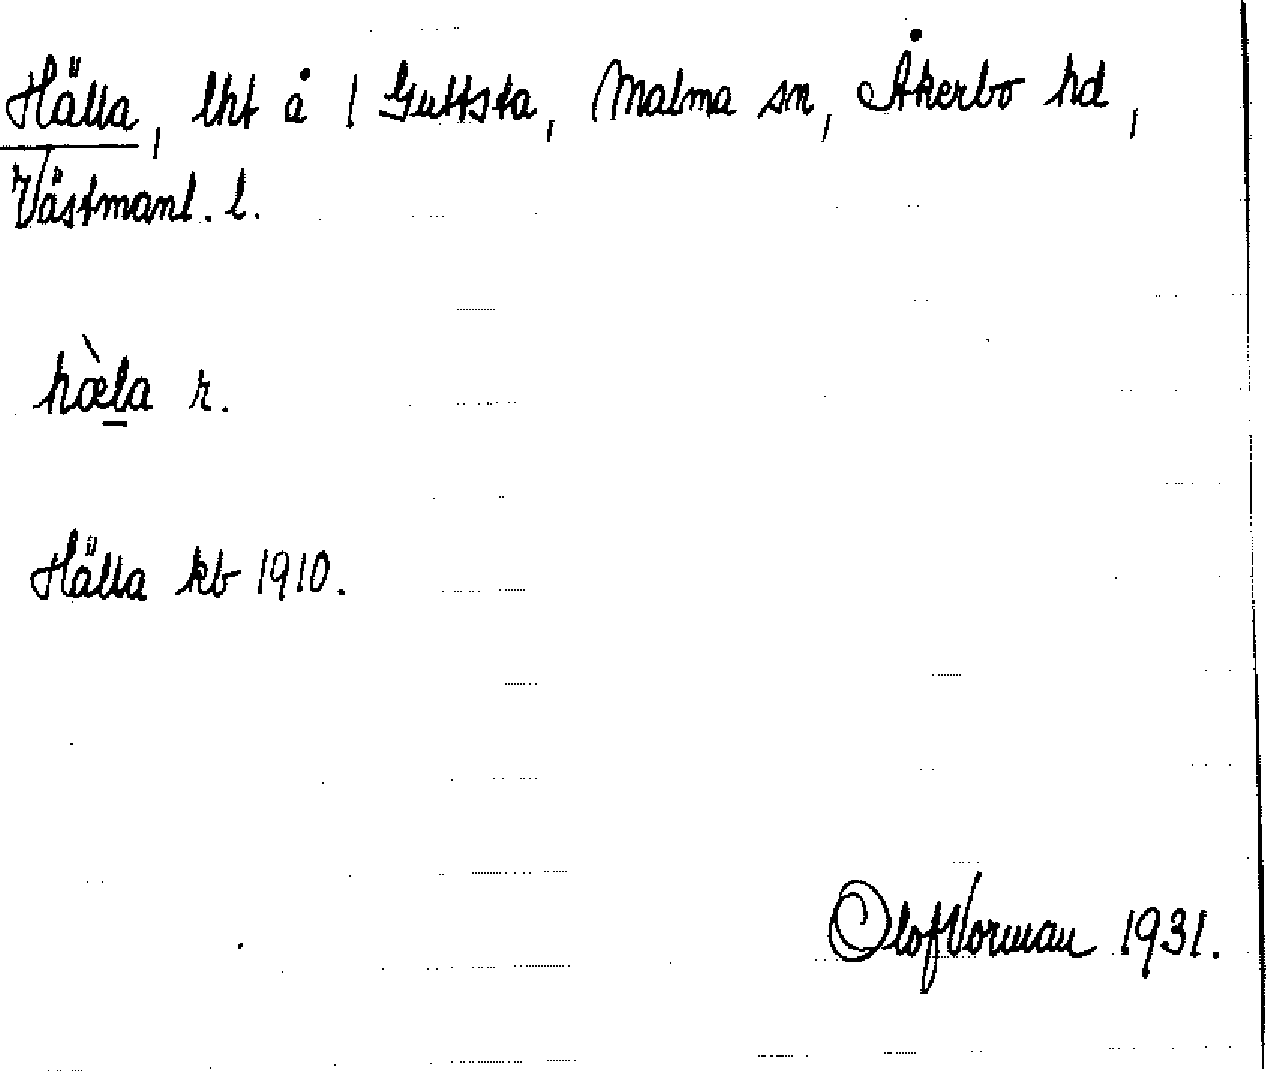 Hälla, lht å 1 Guttsta, Malma sn, Åkerbo hd,
Västmanl. l.
hæ̀l̠a r.
Hälla kb 1910.
Olof Vorman 1931.